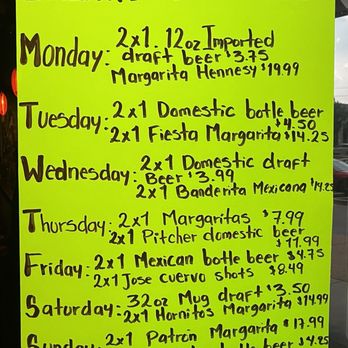 Monday: 2x1. 12oz Imported
draft beer $3.75
Margarita Hennesy $19.99
Tuesday: 2x1 Domestic botle beer
$4.50
2x1 Fiesta Margarita $14.25
Wednesday: 2x1 Domestic draft
Beer $3.99
2x1 Banderita Mexicana $14.25
Thursday: 2x1 Margaritas $7.99
2x1 Pitcher domestic beer
$11.99
Friday: 2x1 Mexican botle beer $4.75
2x1 Jose cuervo shots $8.49
Saturday: 32oz Mug draft $3.50
2x1 Hornitos Margarita $14.99
Sunday: 2x1 Patron Margarita $17.99
beer $4.25